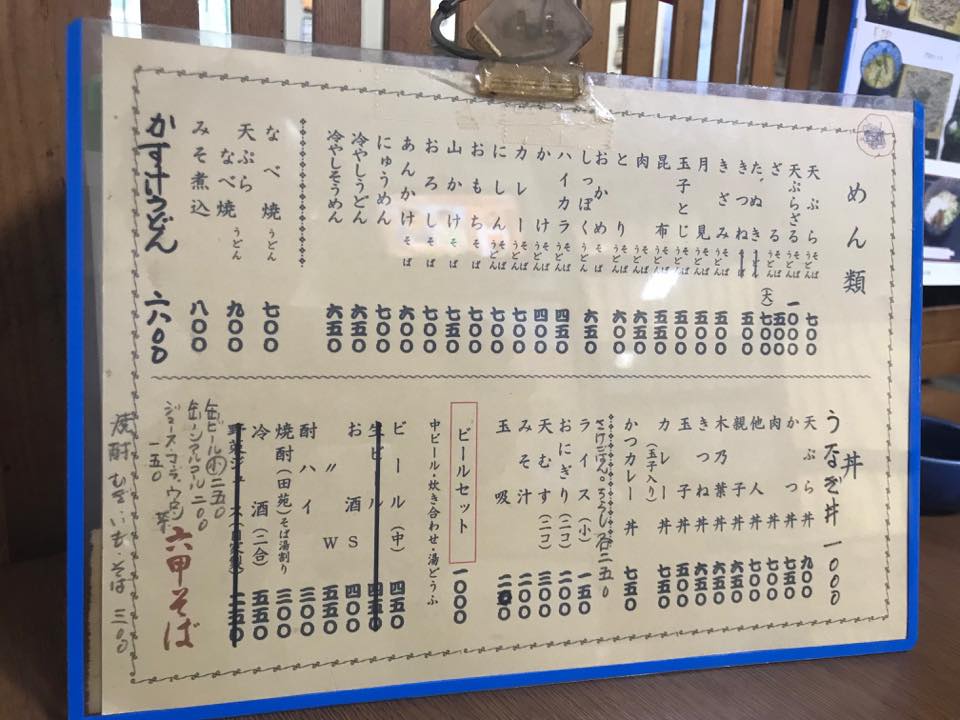 めん類
天ぷら そばうどん 七〇〇
天ぷらざる そばうどん 一〇〇〇
ざる そばうどん 五〇〇 (大)七〇〇
たぬき そば 五〇〇
きつね 五〇〇
きざみ そばうどん 五五〇
月見 そばうどん 五五〇
玉子とじ そばうどん 五五〇
昆布 そばうどん 五五〇
肉 そばうどん 六五〇
とり そばうどん 六〇〇
おかめ そば
しっぽく うどん 六五〇
ハイカラ そばうどん 四五〇
かけ そばうどん 四〇〇
カレー そばうどん 七〇〇
にしん そばうどん 七〇〇
おもち そば 七〇〇
山かけ そば 七五〇
おろし そば 七〇〇
あんかけ そば 六〇〇
にゅうめん 七〇〇
冷やしうどん 六五〇
冷やしそうめん 六五〇
なべ焼 うどん 七〇〇
天ぷらなべ焼 うどん 九〇〇
みそ煮込 八〇〇
かすけうどん 六〇〇
丼
うなぎ丼 一〇〇〇
天ぷら丼 九〇〇
かつ丼 七五〇
肉丼 七〇〇
他人丼 七〇〇
親子丼 六五〇
木乃葉丼 六五〇
きつね丼 五五〇
玉子丼 五五〇
カレー丼 (玉子入り) 七〇〇
かつカレー丼 七五〇
ライス(小) 一五〇
おにぎり(二コ) 二〇〇
天むす(二コ) 三〇〇
みそ汁
玉吸 二〇〇
ビールセット 一〇〇〇
中ビール・炊き合わせ・湯どうふ
ビール(中) 四五〇
生ビール 四五〇
お酒S 四〇〇
〃W 五五〇
酎ハイ 三〇〇
焼酎(田苑)そば湯割り 三〇〇
冷酒(二合) 五五〇
野菜ジュース(自家製) 二五〇
缶ビール 小 二五〇
缶ノンアルコール 二〇〇
ジュース コーラ、ウーロン茶 一五〇
六甲そば
焼酎 むぎ・いも・そば 三〇〇